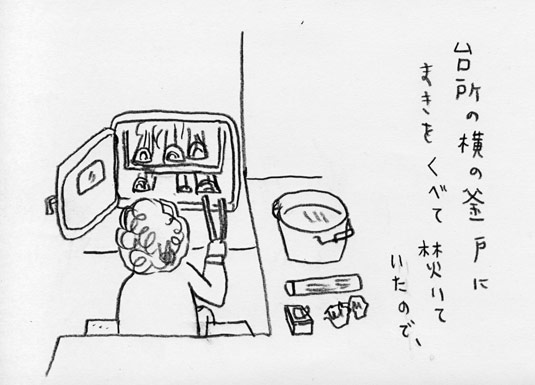 台所の横の釜戸に
まきをくべて焚いて
いたので、